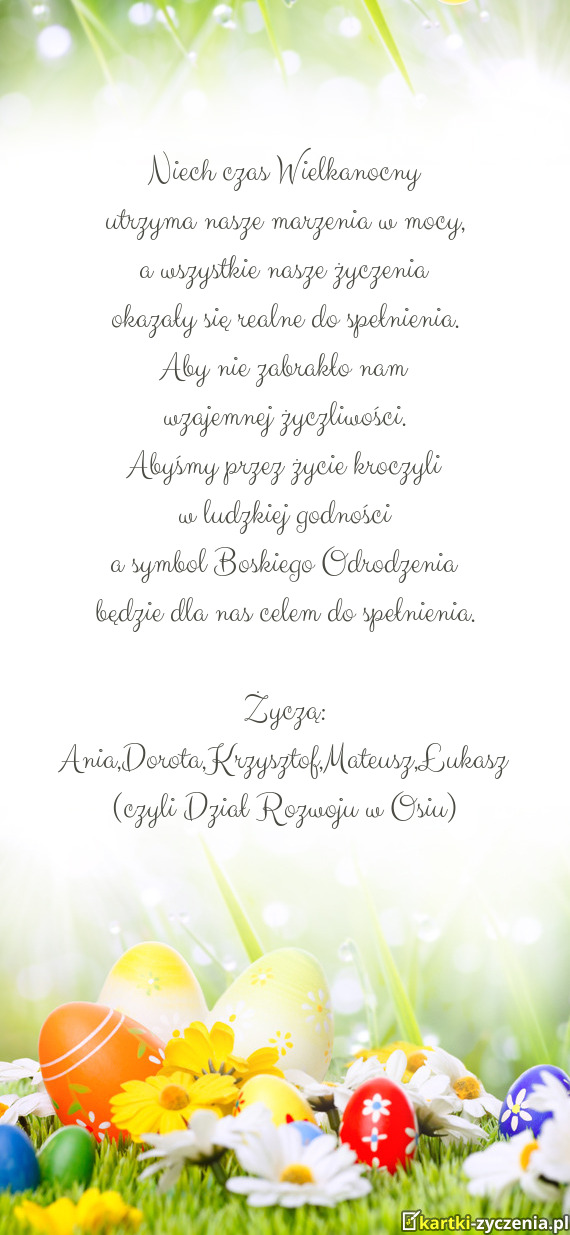 Niech czas Wielkanocny
utrzyma nasze marzenia w mocy,
a wszystkie nasze życzenia
okazały się realne do spełnienia.
Aby nie zabrakło nam
wzajemnej życzliwości.
Abyśmy przez życie kroczyli
w ludzkiej godności
a symbol Boskiego Odrodzenia
będzie dla nas celem do spełnienia.
Życzą:
Ania,Dorota,Krzysztof,Mateusz,Łukasz
(czyli Dział Rozwoju w Osiu)
kartki-zyczenia.pl